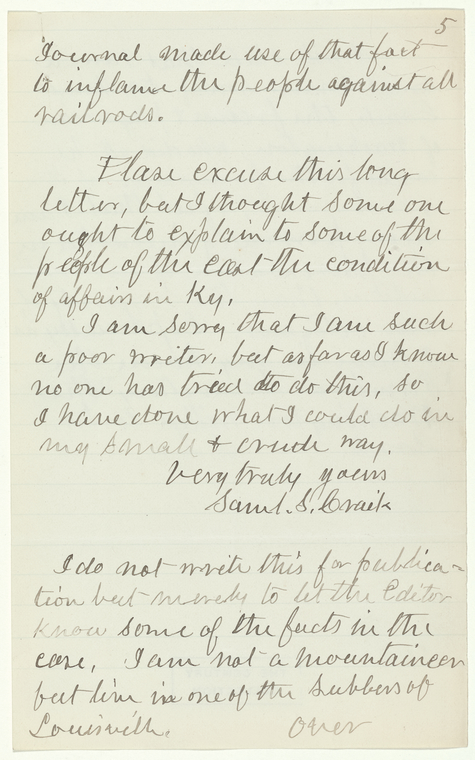 5
Journal made use of that fact
to inflame the people against all
railrods.
Please excuse this long
letter, but I thought some one
ought to explain to some of the
people of the east the condition
of affairs in Ky.
I am sorry that I am such
a poor writer, but as far as I know
no one has tried to do this, so
I have done what I could do in
my small & crude way.
Very truly yours
Saml. S. Craik
I do not write this for publica=
tion but merely to let the Editor
know some of the facts in the
case, I am not a mountaineer
but live in one of the subbers of
Louisville.
over